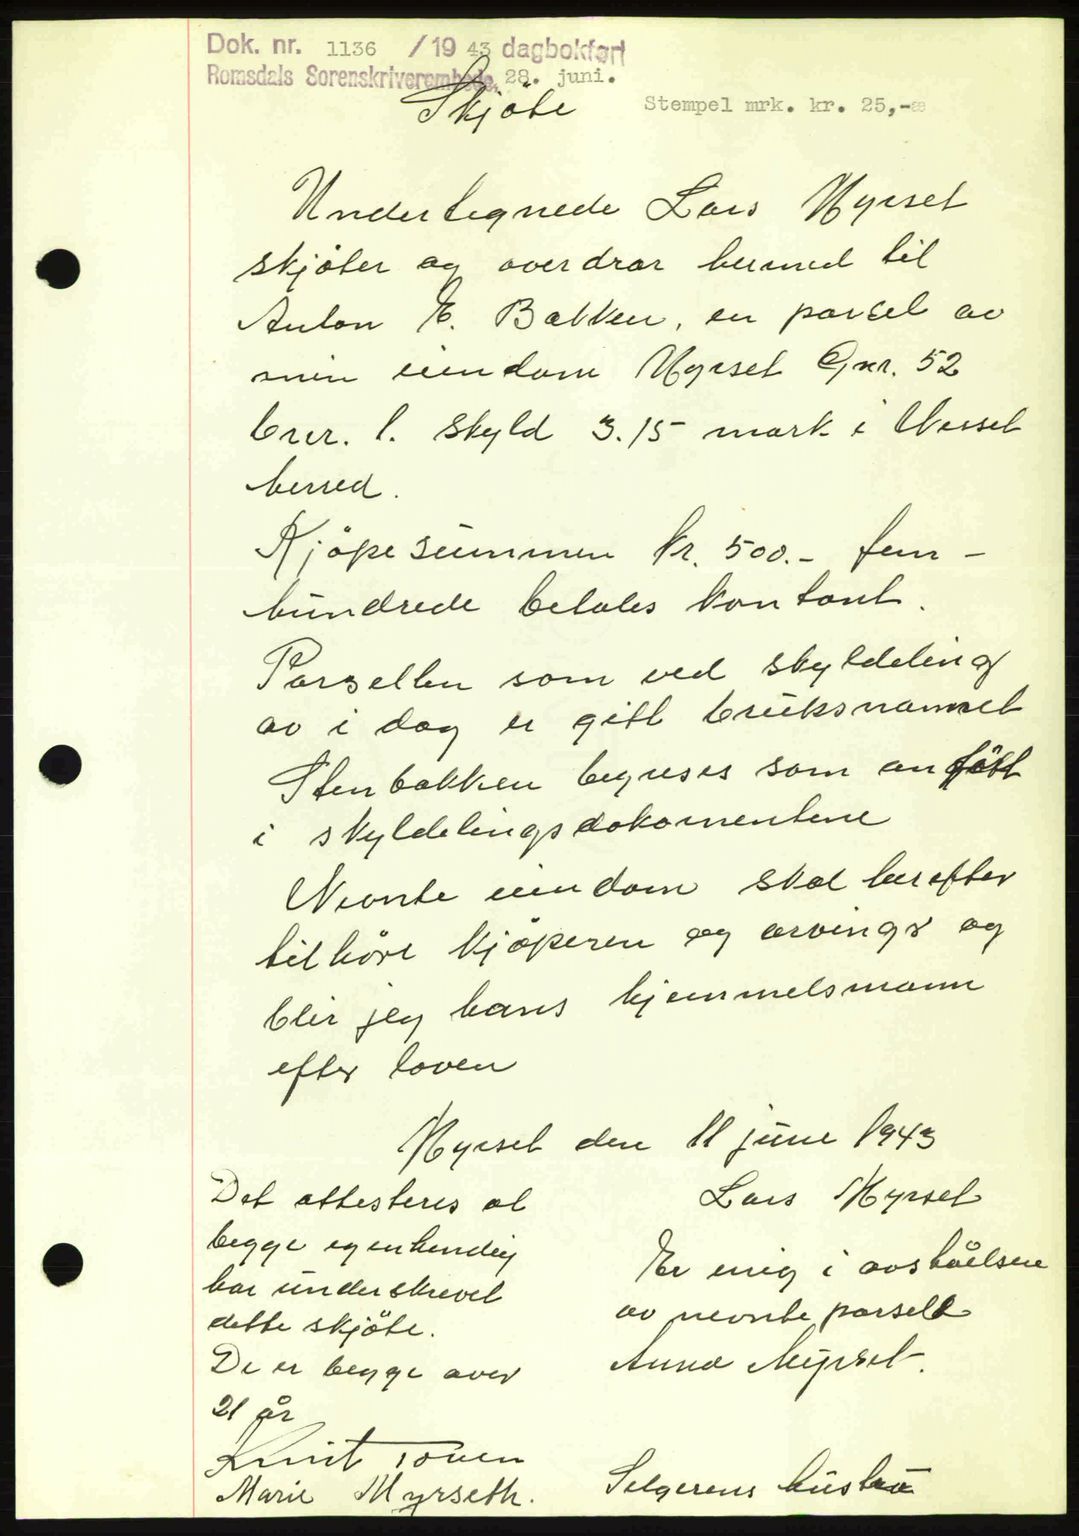 Dok. nr. 1136 / 19 43 dagbokført
Romsdals Sorenskriverembede, 28. juni.
Stempel mrk. kr. 25,-
Skjöte
Undertegnede Lars Myrset
skjöter og overdrar hermed til
Anton E. Bakken, en parsel av
min eiendom Myrset Gnr. 52
bnr. 1. skyld 3.15 mark i Nesset
herred.
Kjöpesummen kr. 500.- fem-
hundrede betales kontant.
Parsellen som ved skyldeling
av i dag er gitt bruksnamnet
Stenbakken begreses som anfört
i skyldelingsdokomentene
Nevnte eiendom skal herefter
tilhöre kjöperen og arvinger og
blir jeg hans hjemmelsmann
efter loven
Myrset den 11 june 1943
Lars Myrset
Det attesteres at
begge egenhendig
har underskrevet
dette skjöte.
De er begge over
21 år
Knut Toven
Marie Myrseth.
Er enig i avståelsen
av nevnte parsell
Anna Myrset.
Selgerens hustru